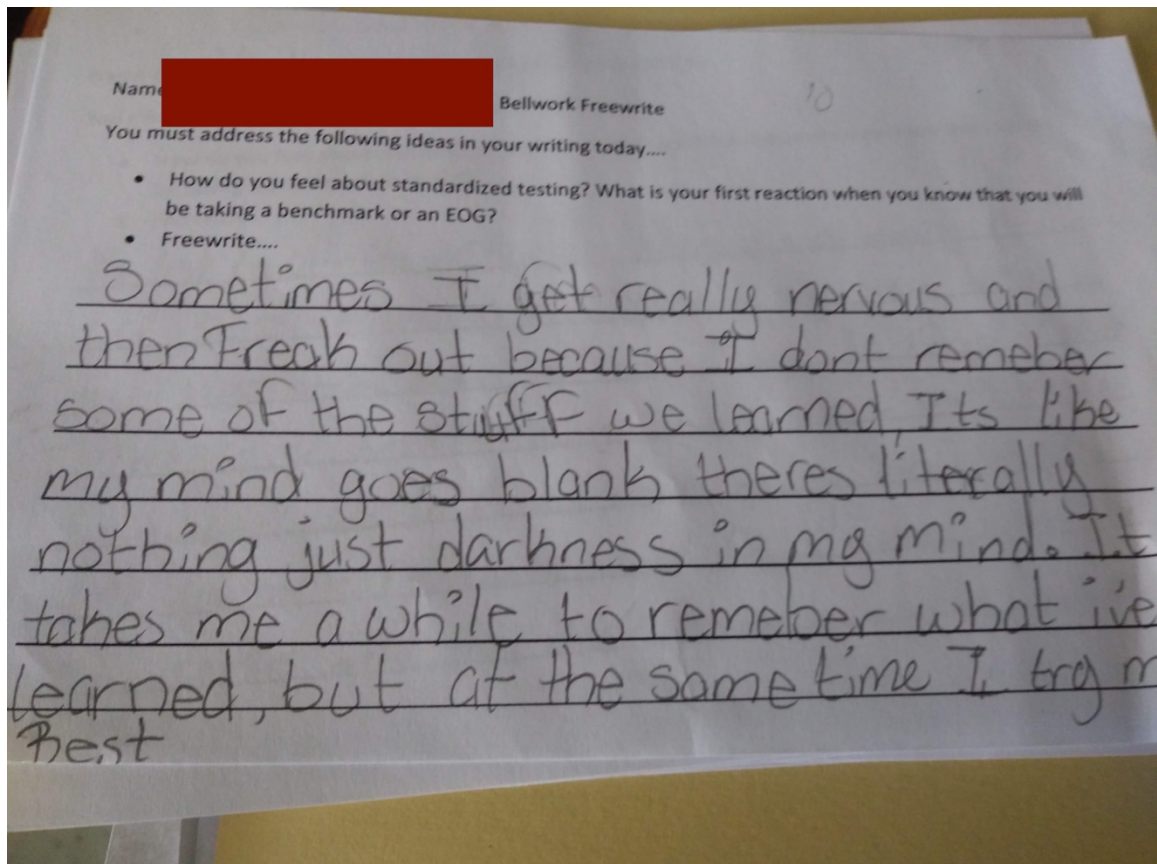 Name
Bellwork Freewrite
10
You must address the following ideas in your writing today....
• How do you feel about standardized testing? What is your first reaction when you know that you will
be taking a benchmark or an EOG?
• Freewrite....
Sometimes I get really nervous and
then Freak out because I dont remeber
some of the stuff we learned, Its like
my mind goes blank theres literally
nothing just darkness in my mind. It
takes me a while to remeber what i've
learned, but at the same time I try m
Best